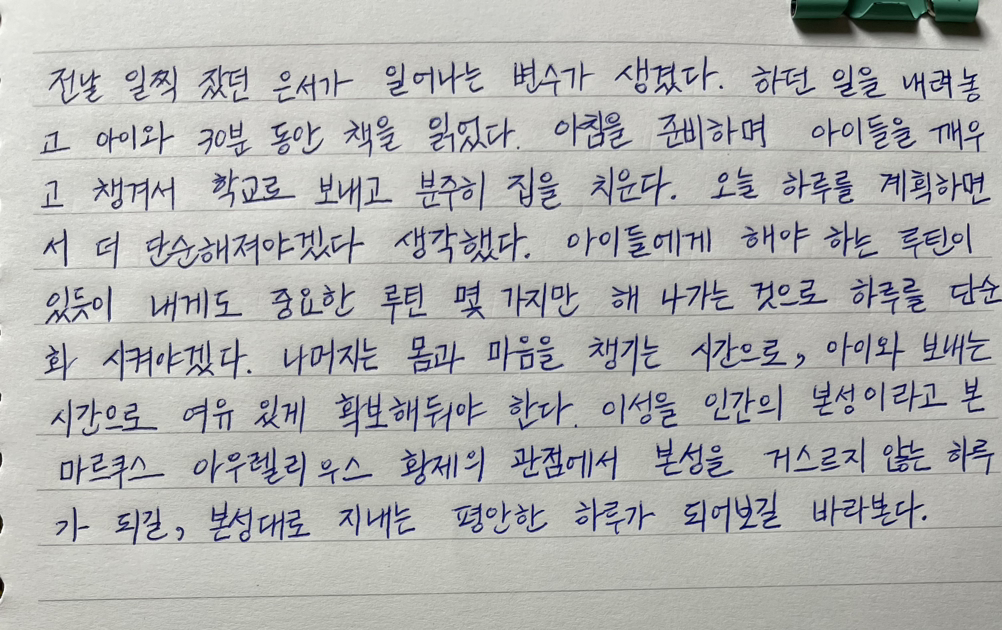 전날 일찍 잤던 은서가 일어나는 변수가 생겼다. 하던 일을 내려놓
고 아이와 30분 동안 책을 읽었다. 아침을 준비하며 아이들을 깨우
고 챙겨서 학교로 보내고 분주히 집을 치운다. 오늘 하루를 계획하면
서 더 단순해져야겠다 생각했다. 아이들에게 해야 하는 루틴이
있듯이 내게도 중요한 루틴 몇 가지만 해 나가는 것으로 하루를 단순
화 시켜야겠다. 나머지는 몸과 마음을 챙기는 시간으로, 아이와 보내는
시간으로 여유 있게 확보해둬야 한다. 이성을 인간의 본성이라고 본
마르쿠스 아우렐리우스 황제의 관점에서 본성을 거스르지 않는 하루
가 되길, 본성대로 지내는 평안한 하루가 되어보길 바라본다.